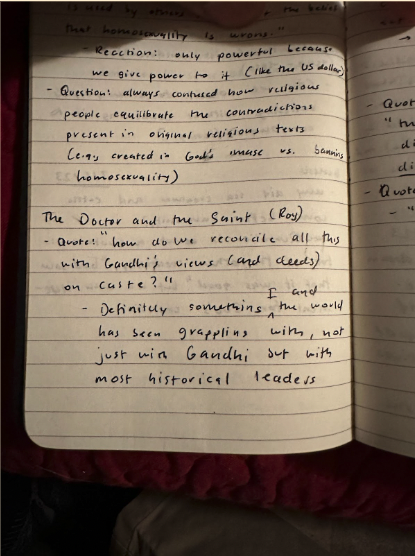 is used by others the
that homosexuality is wrong."
- Reaction: only powerful because
we give power to it (like the US dollar)
- Question: always confused how religious
people equilibrate the contradictions
present in original religious texts
(e.g., created in God's image vs. banning
homosexuality)
The Doctor and the Saint (Roy)
- Quote: "how do we reconcile all this
with Gandhi's views (and deeds)
on caste?"
I and
- Definitely something ^ the world
has been grappling with, not
just with Gandhi but with
most historical leaders
- Quot
"
di
di
- Quote
- "